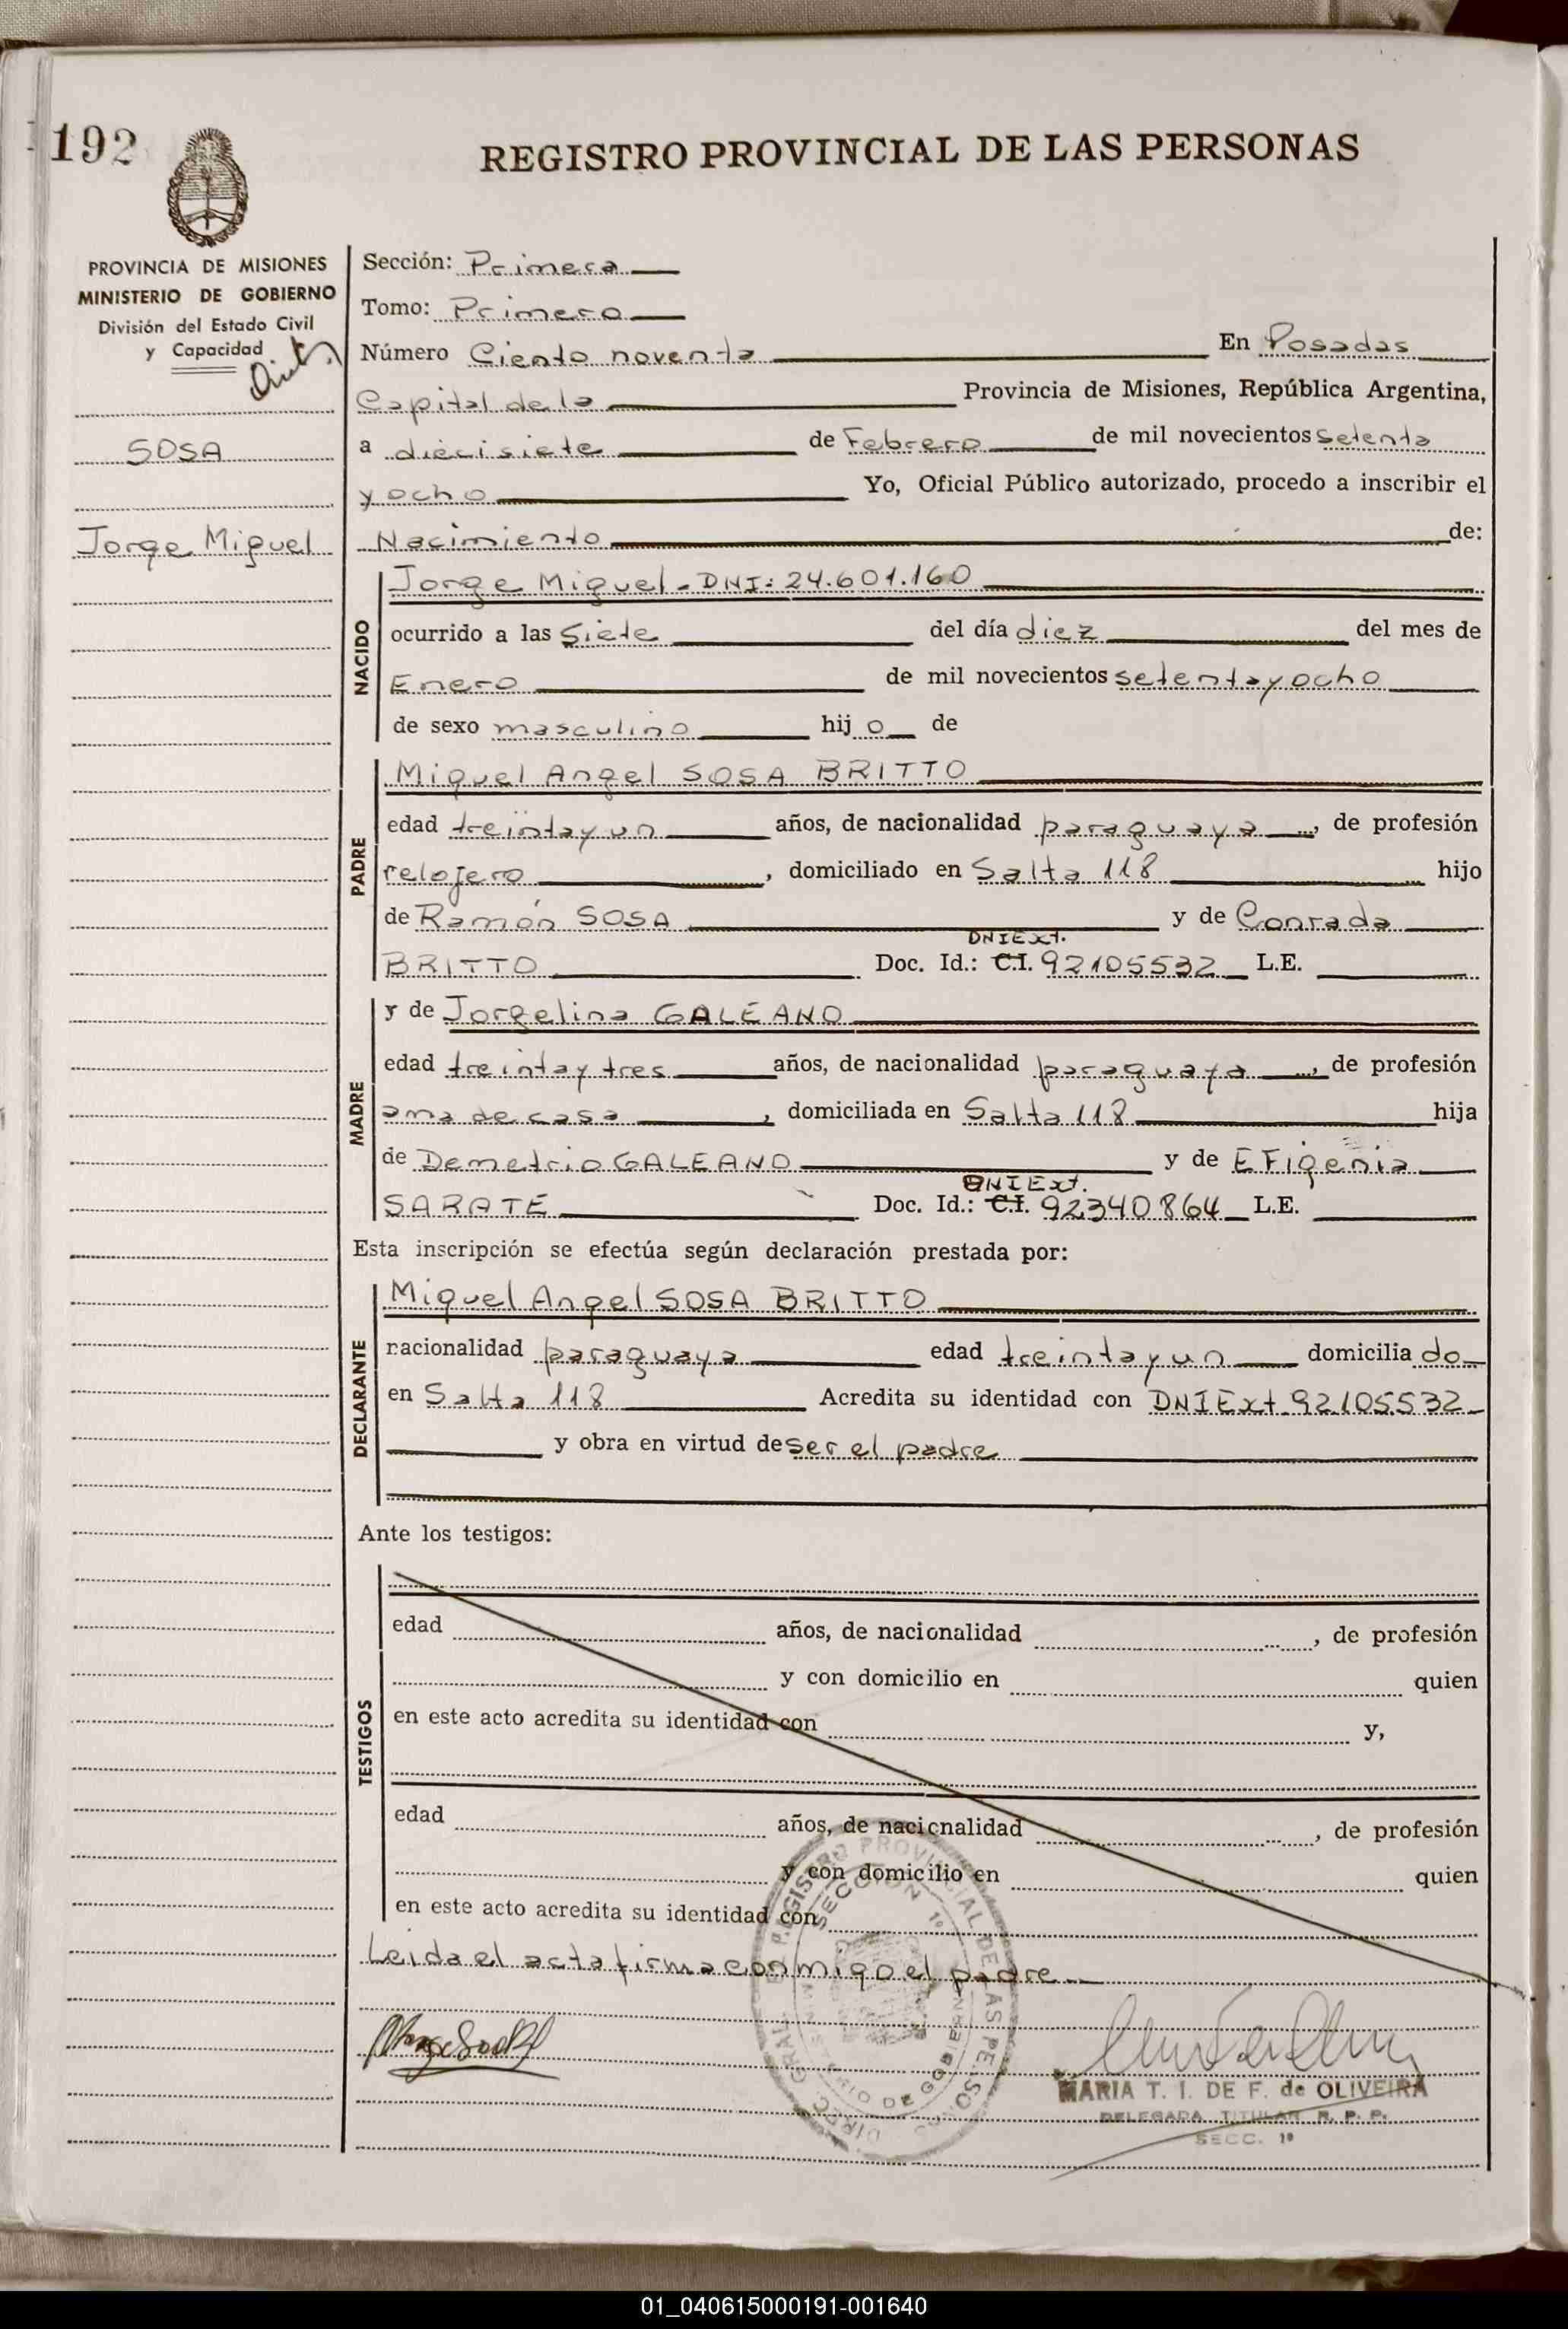 192
REGISTRO PROVINCIAL DE LAS PERSONAS
PROVINCIA DE MISIONES
MINISTERIO DE GOBIERNO
División del Estado Civil
y Capacidad
SOSA
Jorge Miguel
Sección: Primera
Tomo: Primero
Número Ciento noventa En Posadas
Capital de la Provincia de Misiones, República Argentina,
a diecisiete de Febrero de mil novecientos setenta
y ocho Yo, Oficial Público autorizado, procedo a inscribir el
Nacimiento de:
NACIDO
Jorge Miguel - DNI: 24.601.160
ocurrido a las Siete del día diez del mes de
Enero de mil novecientos setenta y ocho
de sexo masculino hij o de
PADRE
Miguel Angel SOSA BRITTO
edad treinta y un años, de nacionalidad paraguaya, de profesión
relojero, domiciliado en Salta 118 hijo
de Ramón SOSA y de Conrada
DNI Ext.
BRITTO Doc. Id.: C.I. 92105532 L.E.
MADRE
y de Jorgelina GALEANO
edad treinta y tres años, de nacionalidad paraguaya, de profesión
ama de casa, domiciliada en Salta 118 hija
de Demetrio GALEANO y de EFigenia
DNI Ext.
SARATE Doc. Id.: C.I. 92340864 L.E.
Esta inscripción se efectúa según declaración prestada por:
DECLARANTE
Miguel Angel SOSA BRITTO
nacionalidad paraguaya edad treinta y un domicilia do
en Salta 118 Acredita su identidad con DNI Ext 92105532
y obra en virtud de ser el padre
Ante los testigos:
TESTIGOS
edad años, de nacionalidad , de profesión
y con domicilio en quien
en este acto acredita su identidad con y,
edad años, de nacionalidad , de profesión
y con domicilio en quien
en este acto acredita su identidad con
Leida el acta firma conmigo el padre
REGISTRO PROVINCIAL DE LAS PERSONAS
SECCION 1º
MINISTERIO DE GOBIERNO
MARIA T. I. DE F. de OLIVEIRA
DELEGADA TITULAR R. P. P.
SECC. 1º
01_040615000191-001640